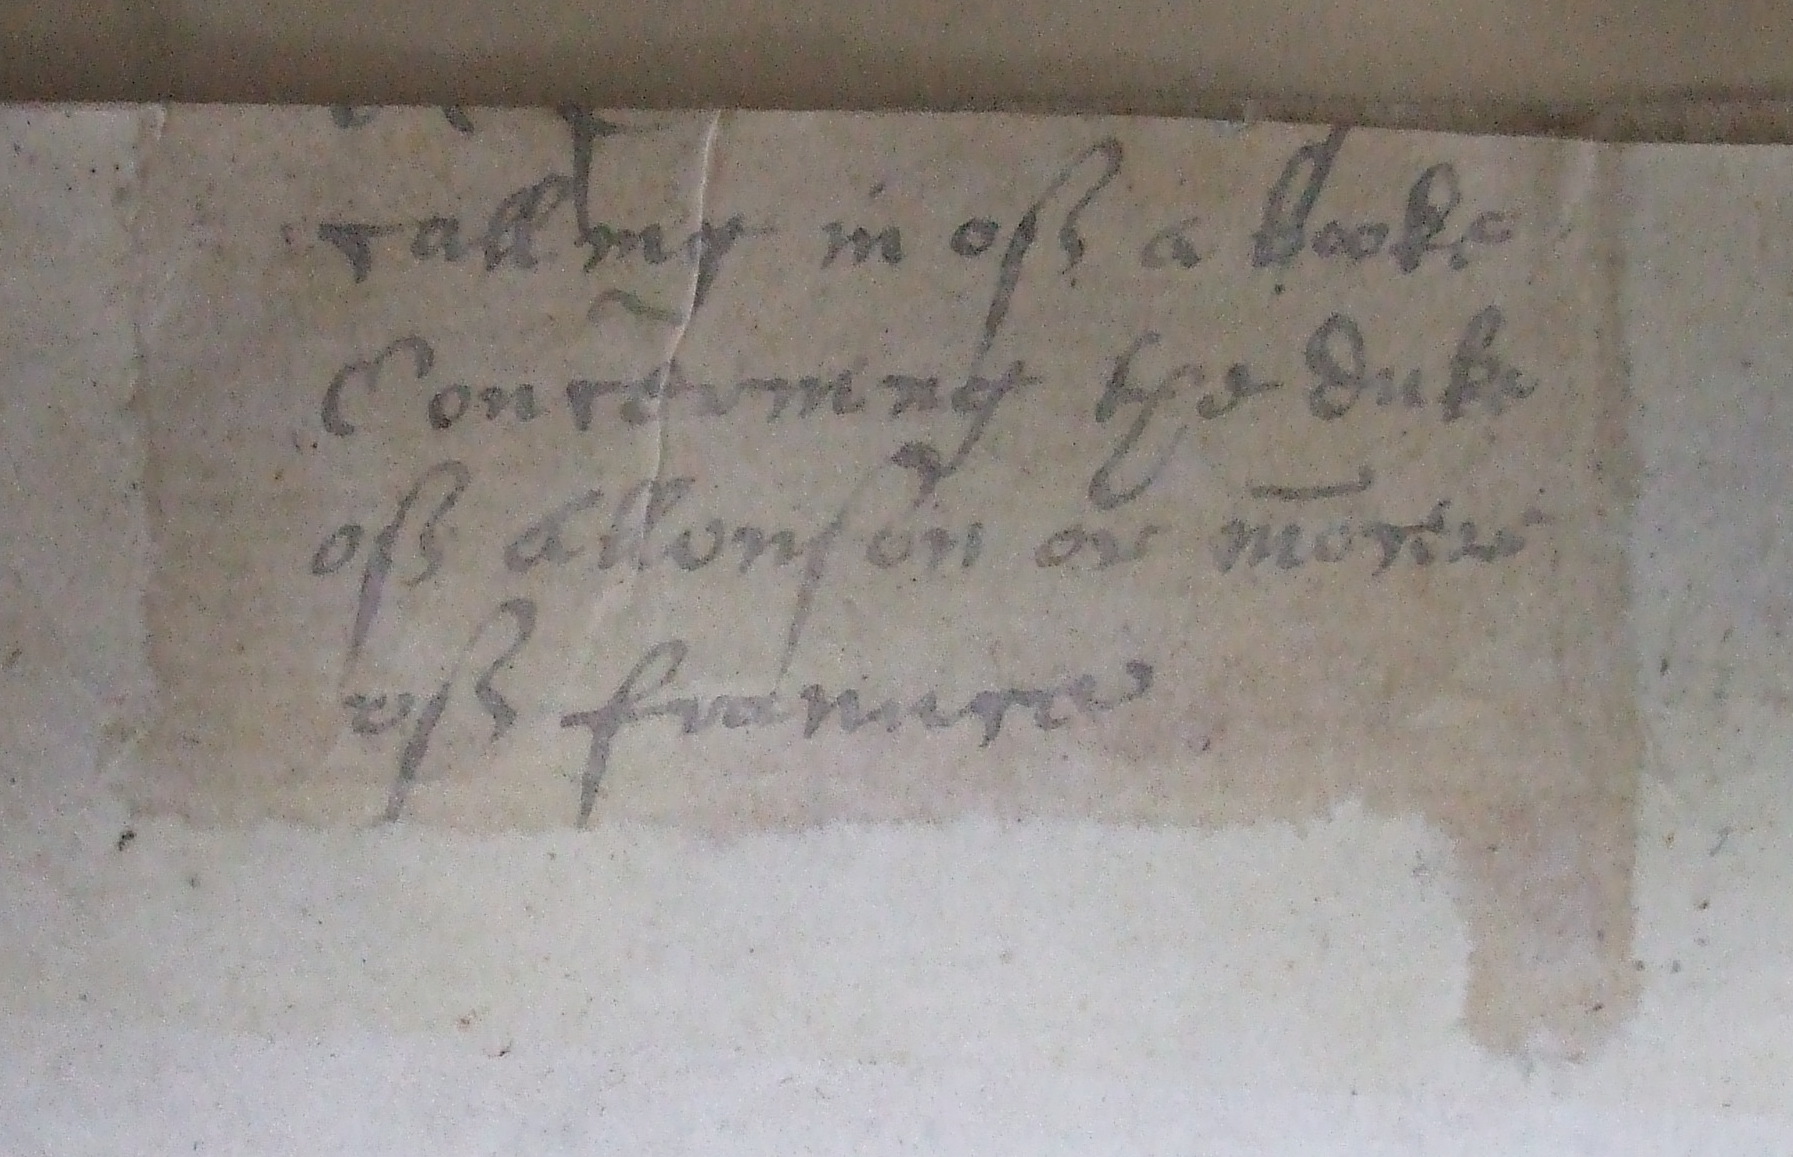 callinge in off a booke
Concerninge the duke
off allonson or mōcier
off fraunce